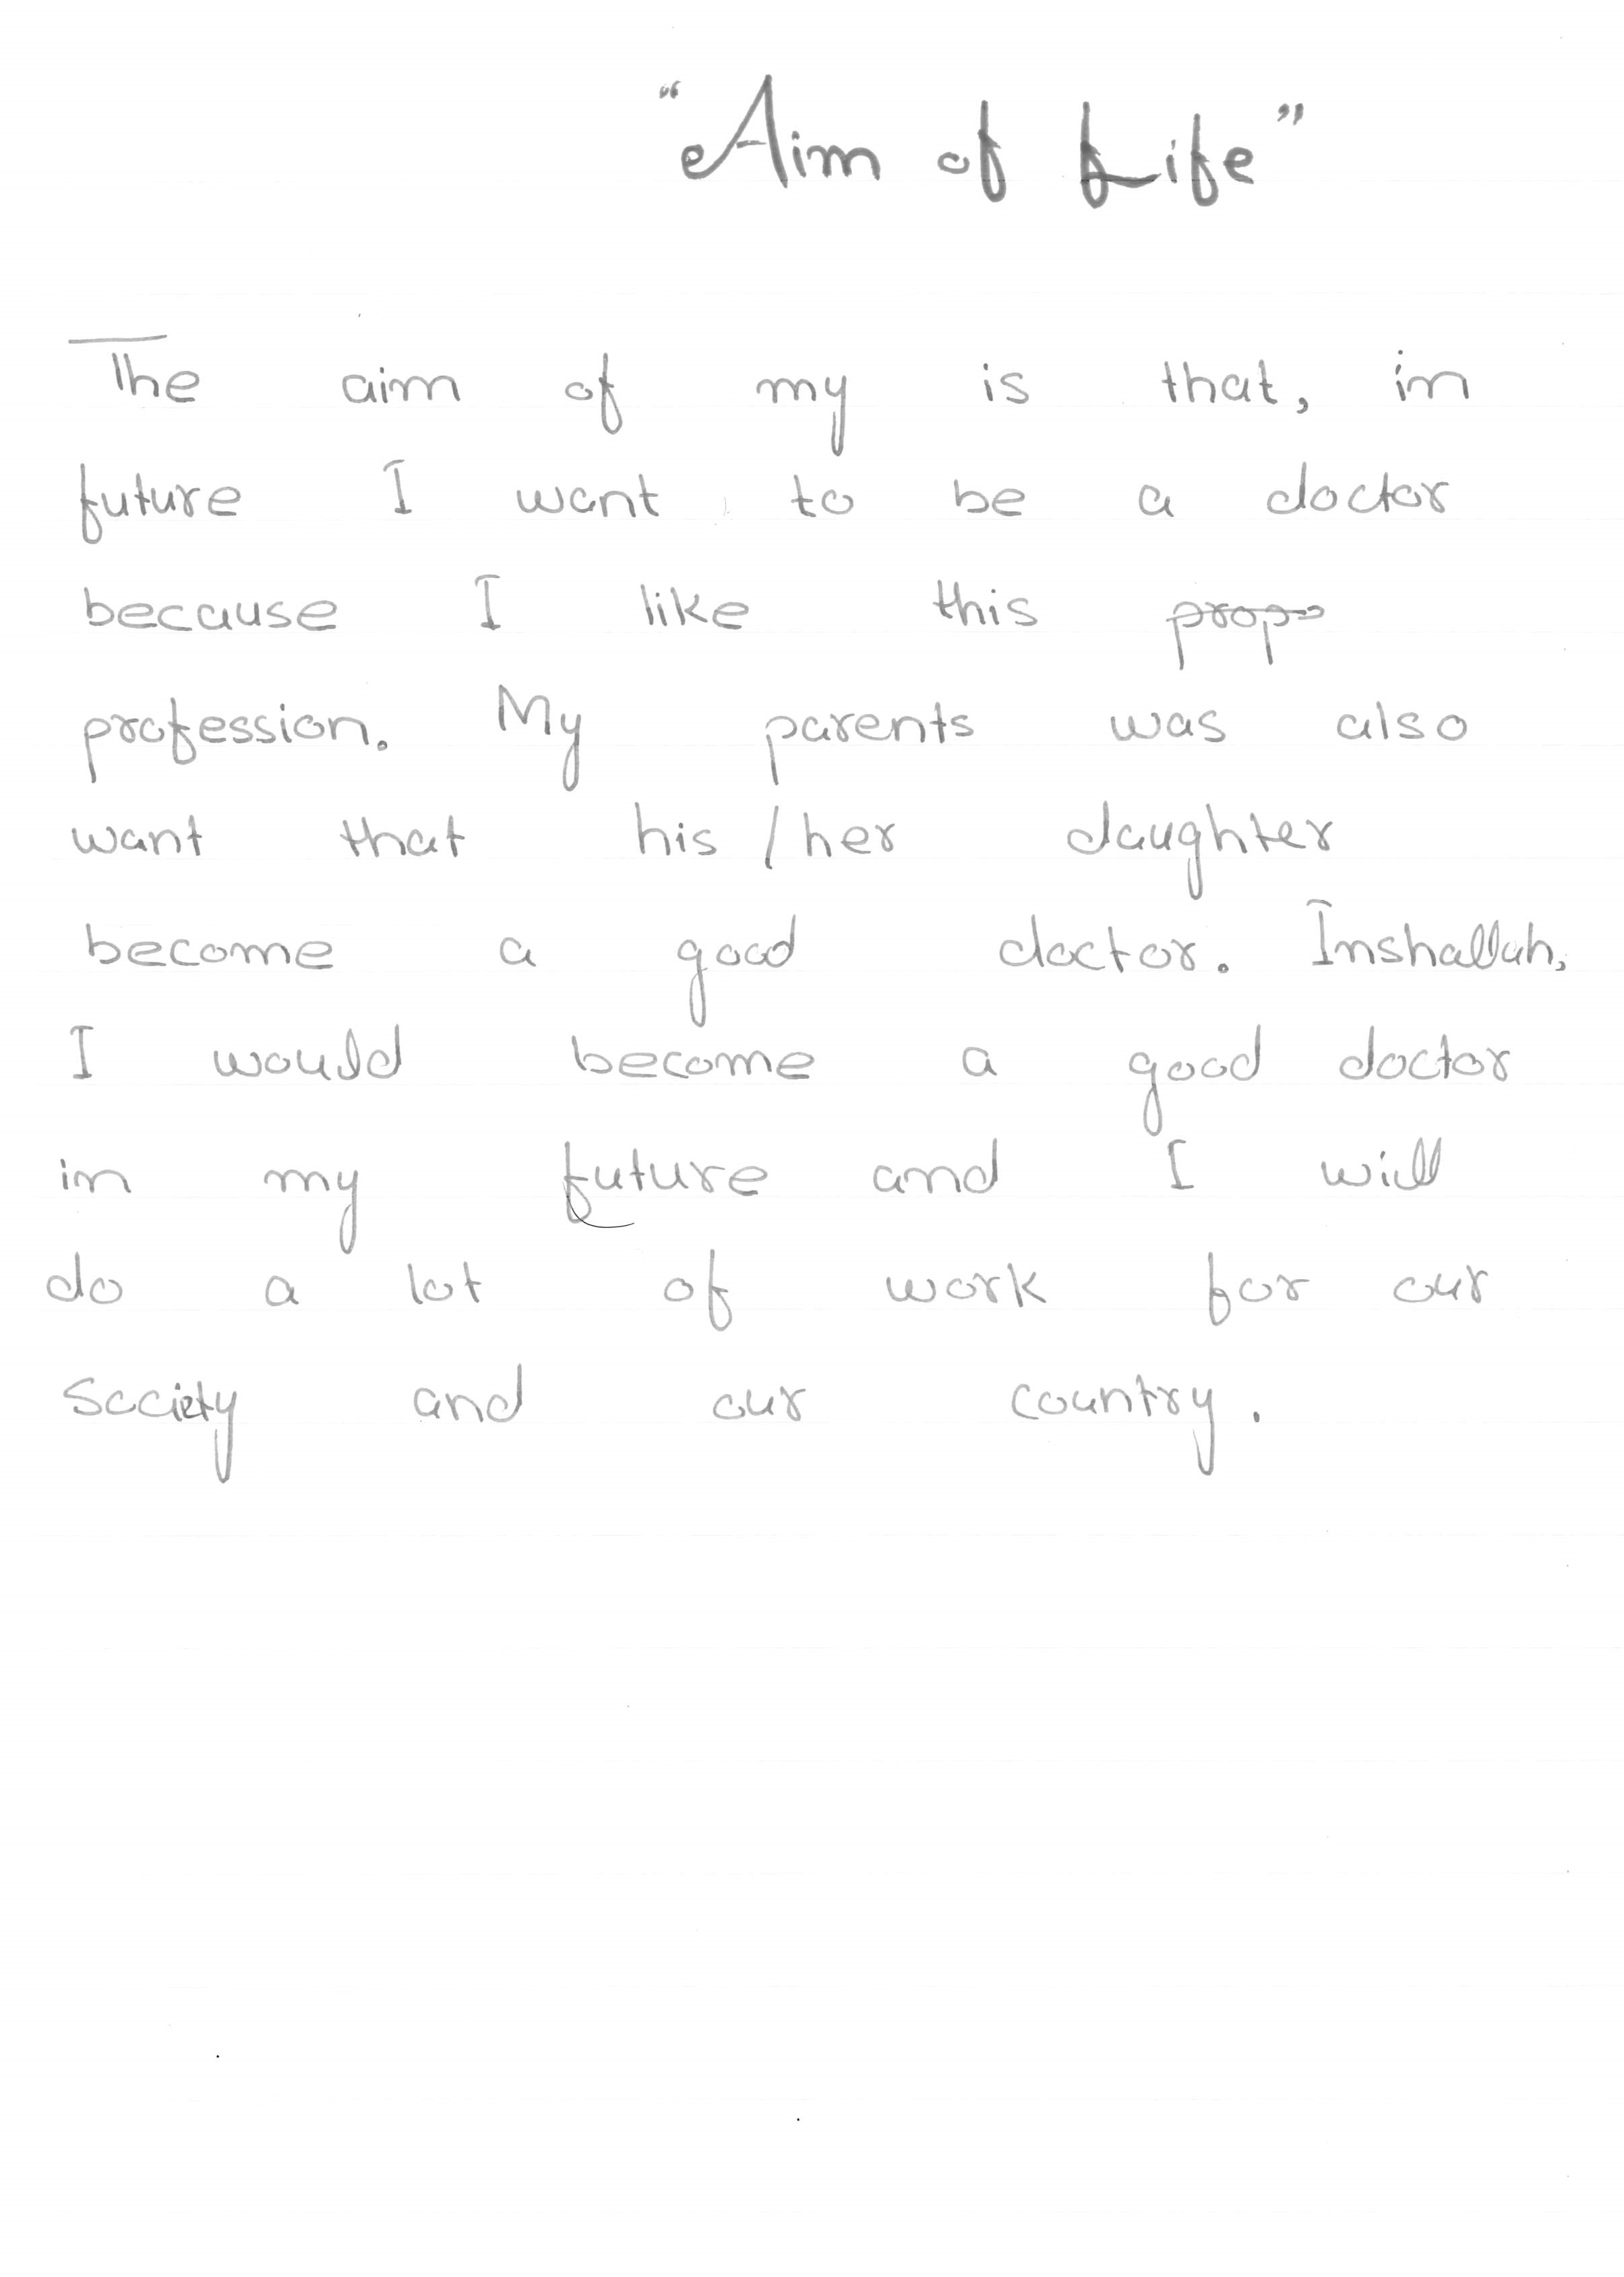 "Aim of Life"
The aim of my is that, in
future I want to be a doctor
because I like this prop
profession. My parents was also
want that his / her daughter
become a good doctor. Inshallah,
I would become a good doctor
in my future and I will
do a lot of work for our
Society and our country.